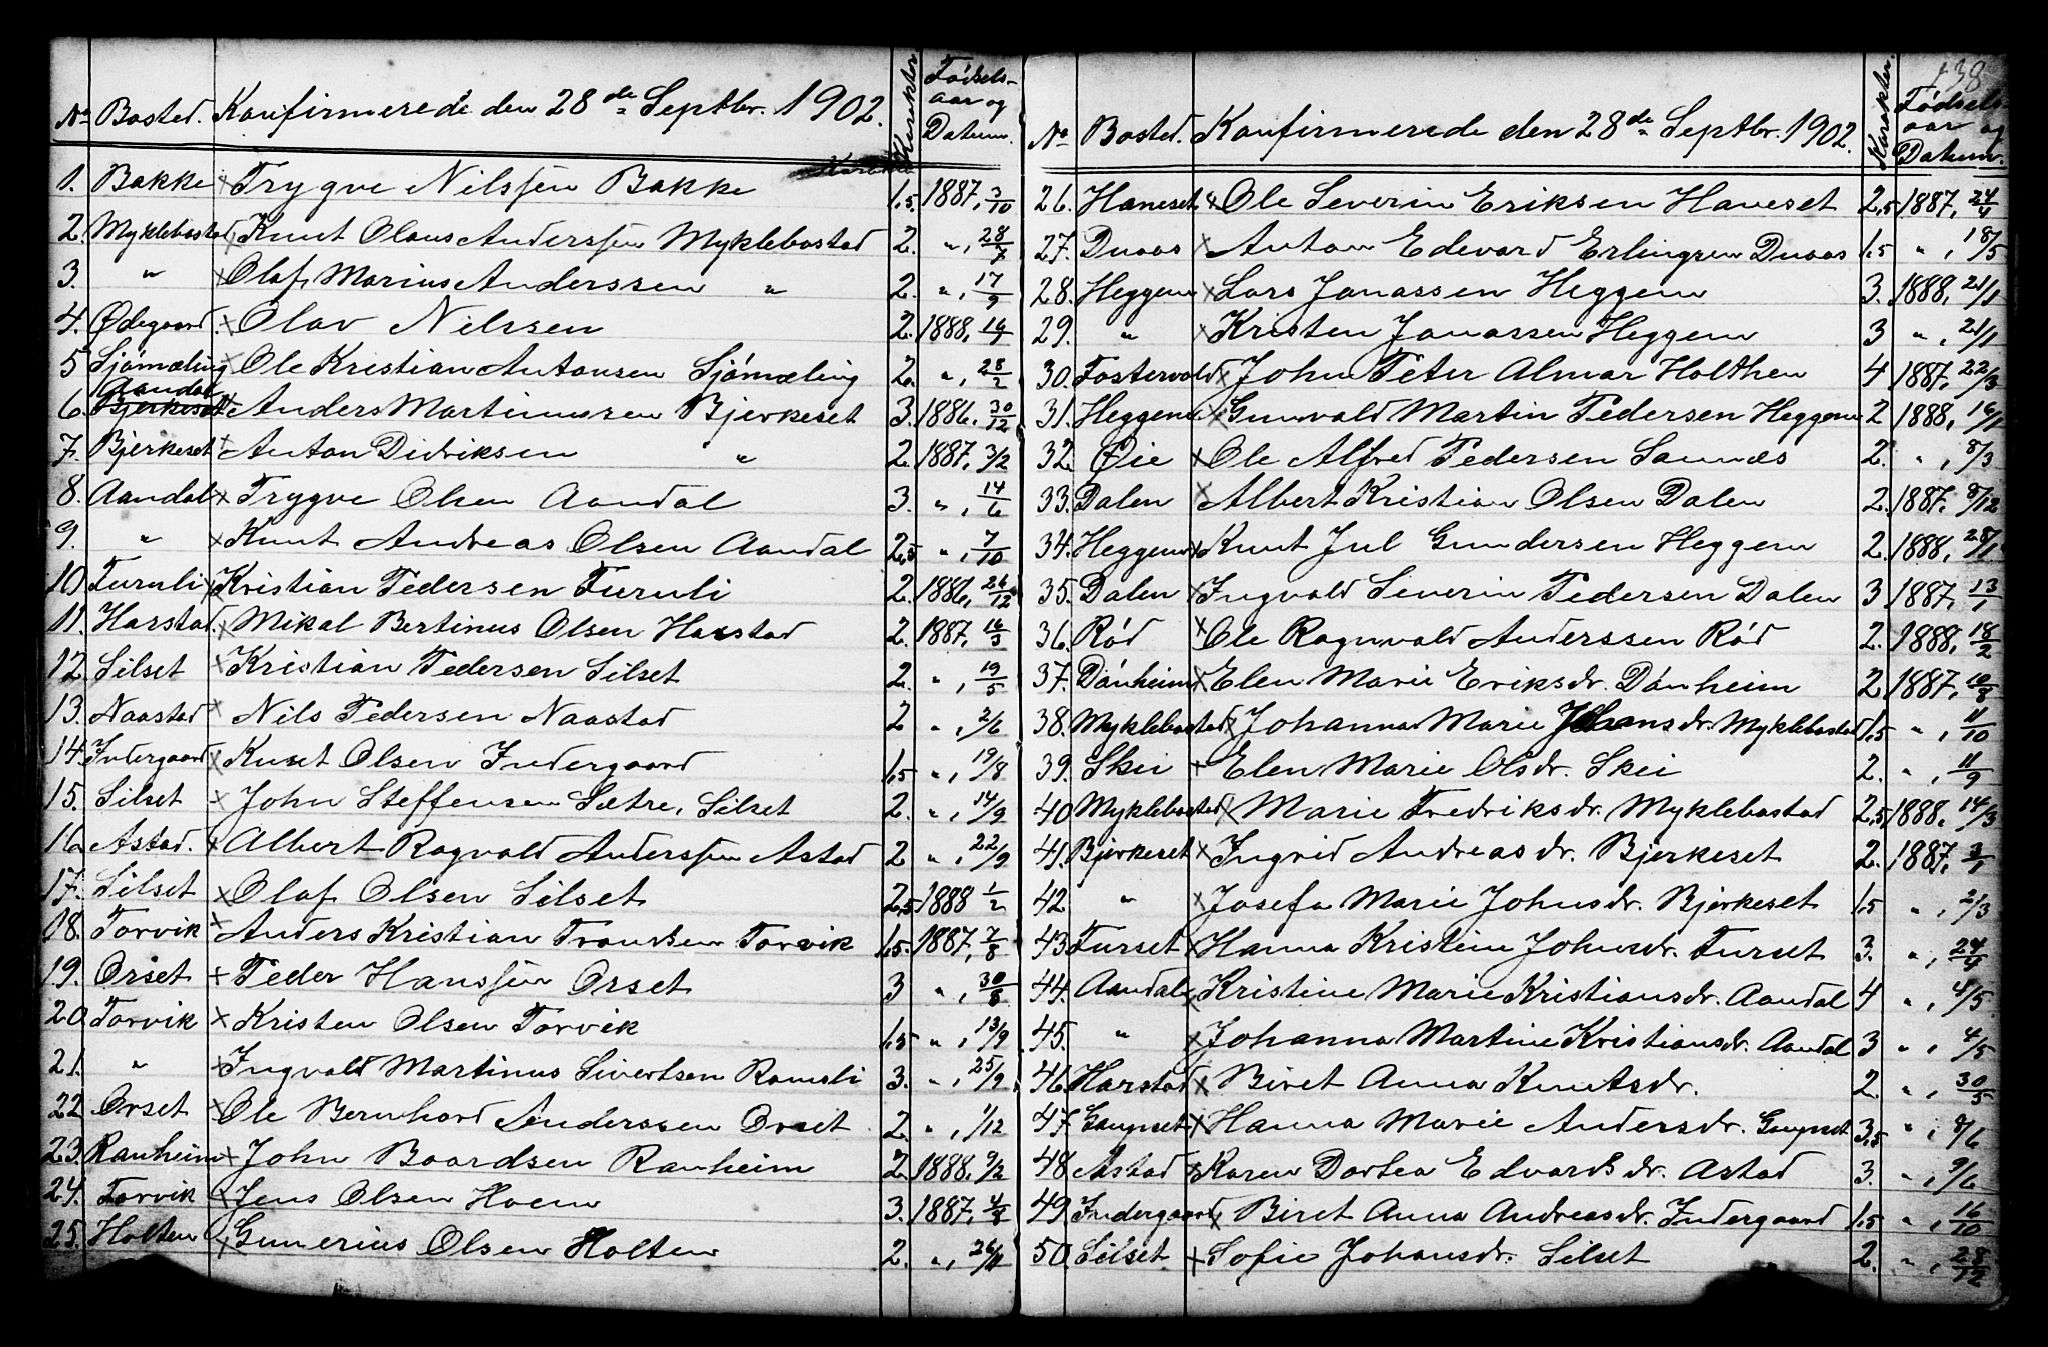 No Bosted. Konfirmerede den 28de Septbr. 1902. Karakter Fødsels-aar og Datum.
1. Bakke × Trygve Nilssen Bakke 1,5. 1887, 3/10
2. Myklebostad × Knut Olaus Anderssen Myklebostad 2. ", 28/7
3. " × Olaf Marius Anderssen " 2. ", 17/9
4. Ødegaard × Olav Nilssen 2. 1888,
5 Sjømæling × Ole Kristian Antonsen Sjømæling 2. ", 28/2
6. Aandal Bjerkeset × Anders Martinussen Bjerkeset 3. 1886. 30/12
7. Bjerkeset × Anton Didriksen " 2. 1887, 3/2
8. Aandal × Trygve Olsen Aandal 3. ", 14/6
9. " × Knut Andreas Olsen Aandal 2,5 ", 7/10
10. Furuli × Kristian Pedersen Furuli 2. 1886, 26/12
11. Harstad × Mikal Bertinus Olsen Harstad 2. 1887, 16/3
12. Silset × Kristian Pedersen Silset 2. ", 19/5
13. Naastad × Nils Pedersen Naastad 2 ", 2/6
14. Indergaard × Knut Olsen Indergaard 1,5 ", 19/8
15. Silset × John Steffensen Sætre, Silset 2. ", 14/9
16. Astad. × Albert Ragvald Anderssen Astad 2 ", 22/9
17. Silset × Olaf Olsen Silset 2,5 1888 1/2
18. Torvik × Anders Kristian Trondsen Torvik 1,5 1887, 7/8
19. Orset × Peder Hanssen Orset 3 ", 30/8
20. Torvik × Kristen Olsen Torvik 1,5 ", 13/9
21. " × Ingvald Martinus Sivertsen Ramsli 3. ", 25/9
22. Orset × Ole Bernhard Anderssen Orset 2. ", 1/12
23. Ranheim × John Baardsen Ranheim 2. 1888, 9/2
24. Torvik × Jens Olsen Hoem 3. 1887, 4/8
25. Holten × Gunerius Olsen Holten 2. ", 26/11
138
No Bosted. Konfirmerede den 28de Septbr. 1902. Karakter. Fødsels-aar og Datum.
26. Haneset × Ole Severin Eriksen Haneset 2,5 1887, 24/4
27. Duaas × Anton Edevard Erlingsen Duaas 1,5 ", 18/5
28. Heggem × Lars Jonassen Heggem 3. 1888, 21/1
29. " × Kristen Jonassen Heggem 3 ", 21/1
30. Fostervold × John Peter Almar Holthen 4 1887, 22/3
31. Heggem × Gunvald Martin Pedersen Heggem 2 1888, 16/1
32. Øie × Ole Alfred Pedersen Sannes 2. ", 8/3
33. Dalen × Albert Kristian Olsen Dalen 2. 1887, 8/12
34. Heggem × Knut Jul Gundersen Heggem 2. 1888, 28/1
35. Dalen × Ingvald Severin Pedersen Dalen 3 1887, 13/1
36. Rød × Ole Ragnvald Anderssen Rød 2. 1888, 18/2
37. Dønheim × Elen Marie Eriksdr. Dønheim 2 1887, 10/8
38. Myklebostad × Johanna Marie Johansdr. Myklebostad 1,5 ", 11/10
39. Skei × Elen Marie Olsdr. Skei 2. ", 11/9
40 Myklebostad × Marie Fredriksdr. Myklebostad 2,5 1888, 14/3
41. Bjerkeset × Ingrid Andreasdr. Bjerkeset 2. 1887, 3/1
42 " × Josefa Marie Johnsdr. Bjerkeset 1,5 ", 2/3
43 Furset × Hanna Kristine Johnsdr. Furset 3. ", 24/4
44. Aandal × Kristine Marie Kristiansdr. Aandal 4 ", 4/5
45. " × Johanna Martine Kristiansdr. Aandal 3 ", 4/5
46. Harstad × Beret Anna Knutsdr. 2. ", 30/5
47. Gaupset × Hanna Marie Andersdr. Gaupset 3,5 ", 8/6
48 Astad × Karen Dortea Edvardsdr. Astad 3. ", 9/6
49. Indergaard × Beret Anna Andreasdr. Indergaard 1,5 ", 16/10
50. Silset × Sofie Johansdr. Silset 2. ", 28/12